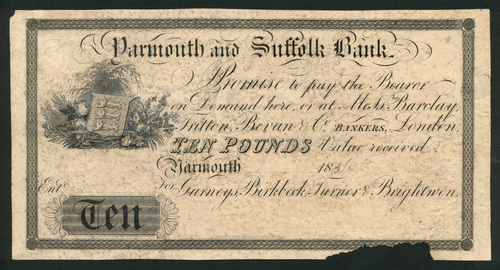 Yarmouth and Suffolk Bank.
I Promise to pay the Bearer
on Demand here, or at Mess.rs Barclay,
Tritton, Bevan & Co. BANKERS, London,
TEN POUNDS Value received
Yarmouth 183
Ent.d For Gurneys, Birkbeck, Turner & Brightwen.
Ten